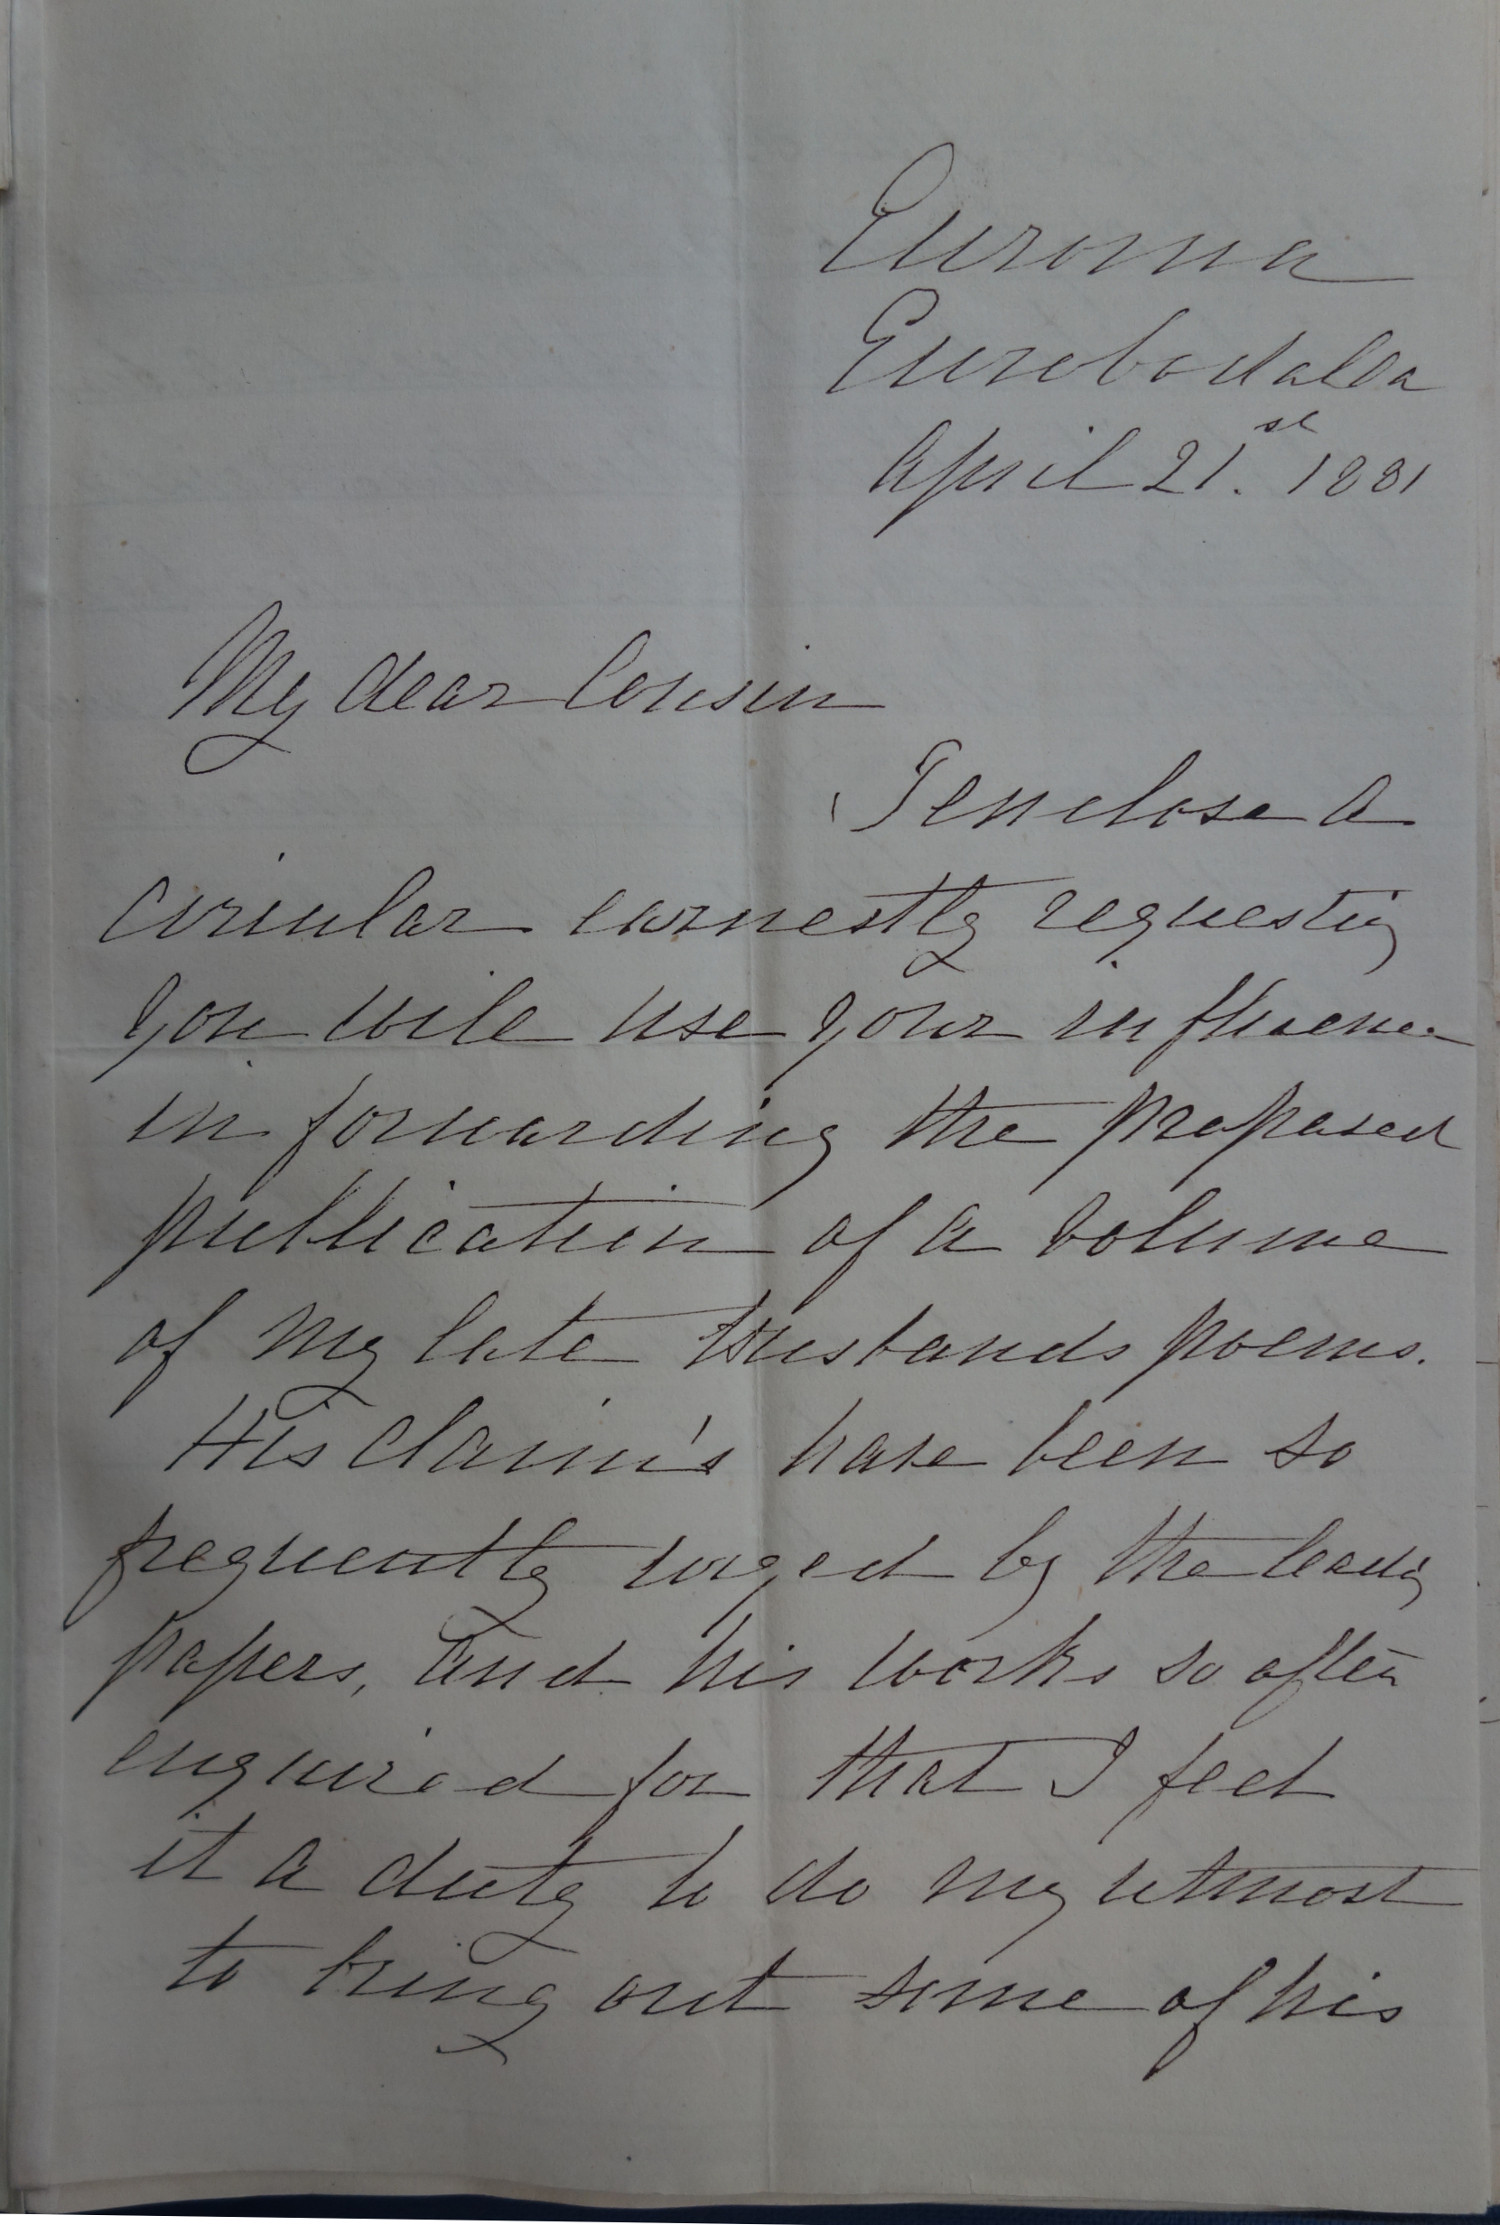 Euroma
Eurobodalla
April 21.st 1881
My dear Cousin
I enclose a
circular earnestly requesting
you will use your influence
in forwarding the proposed
publication of a volume
of my late Husbands poems.
His claim's have been so
frequently urged by the leading
papers, and his works so often
enquired for that I feel
it a duty to do my utmost
to bring out some of his